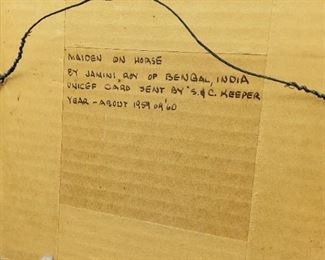 MAIDEN ON HORSE
BY JAMINI, ROY OF BENGAL, INDIA
UNICEF CARD SENT BY S. & C. KEEPER
YEAR - ABOUT 1959 OR '60